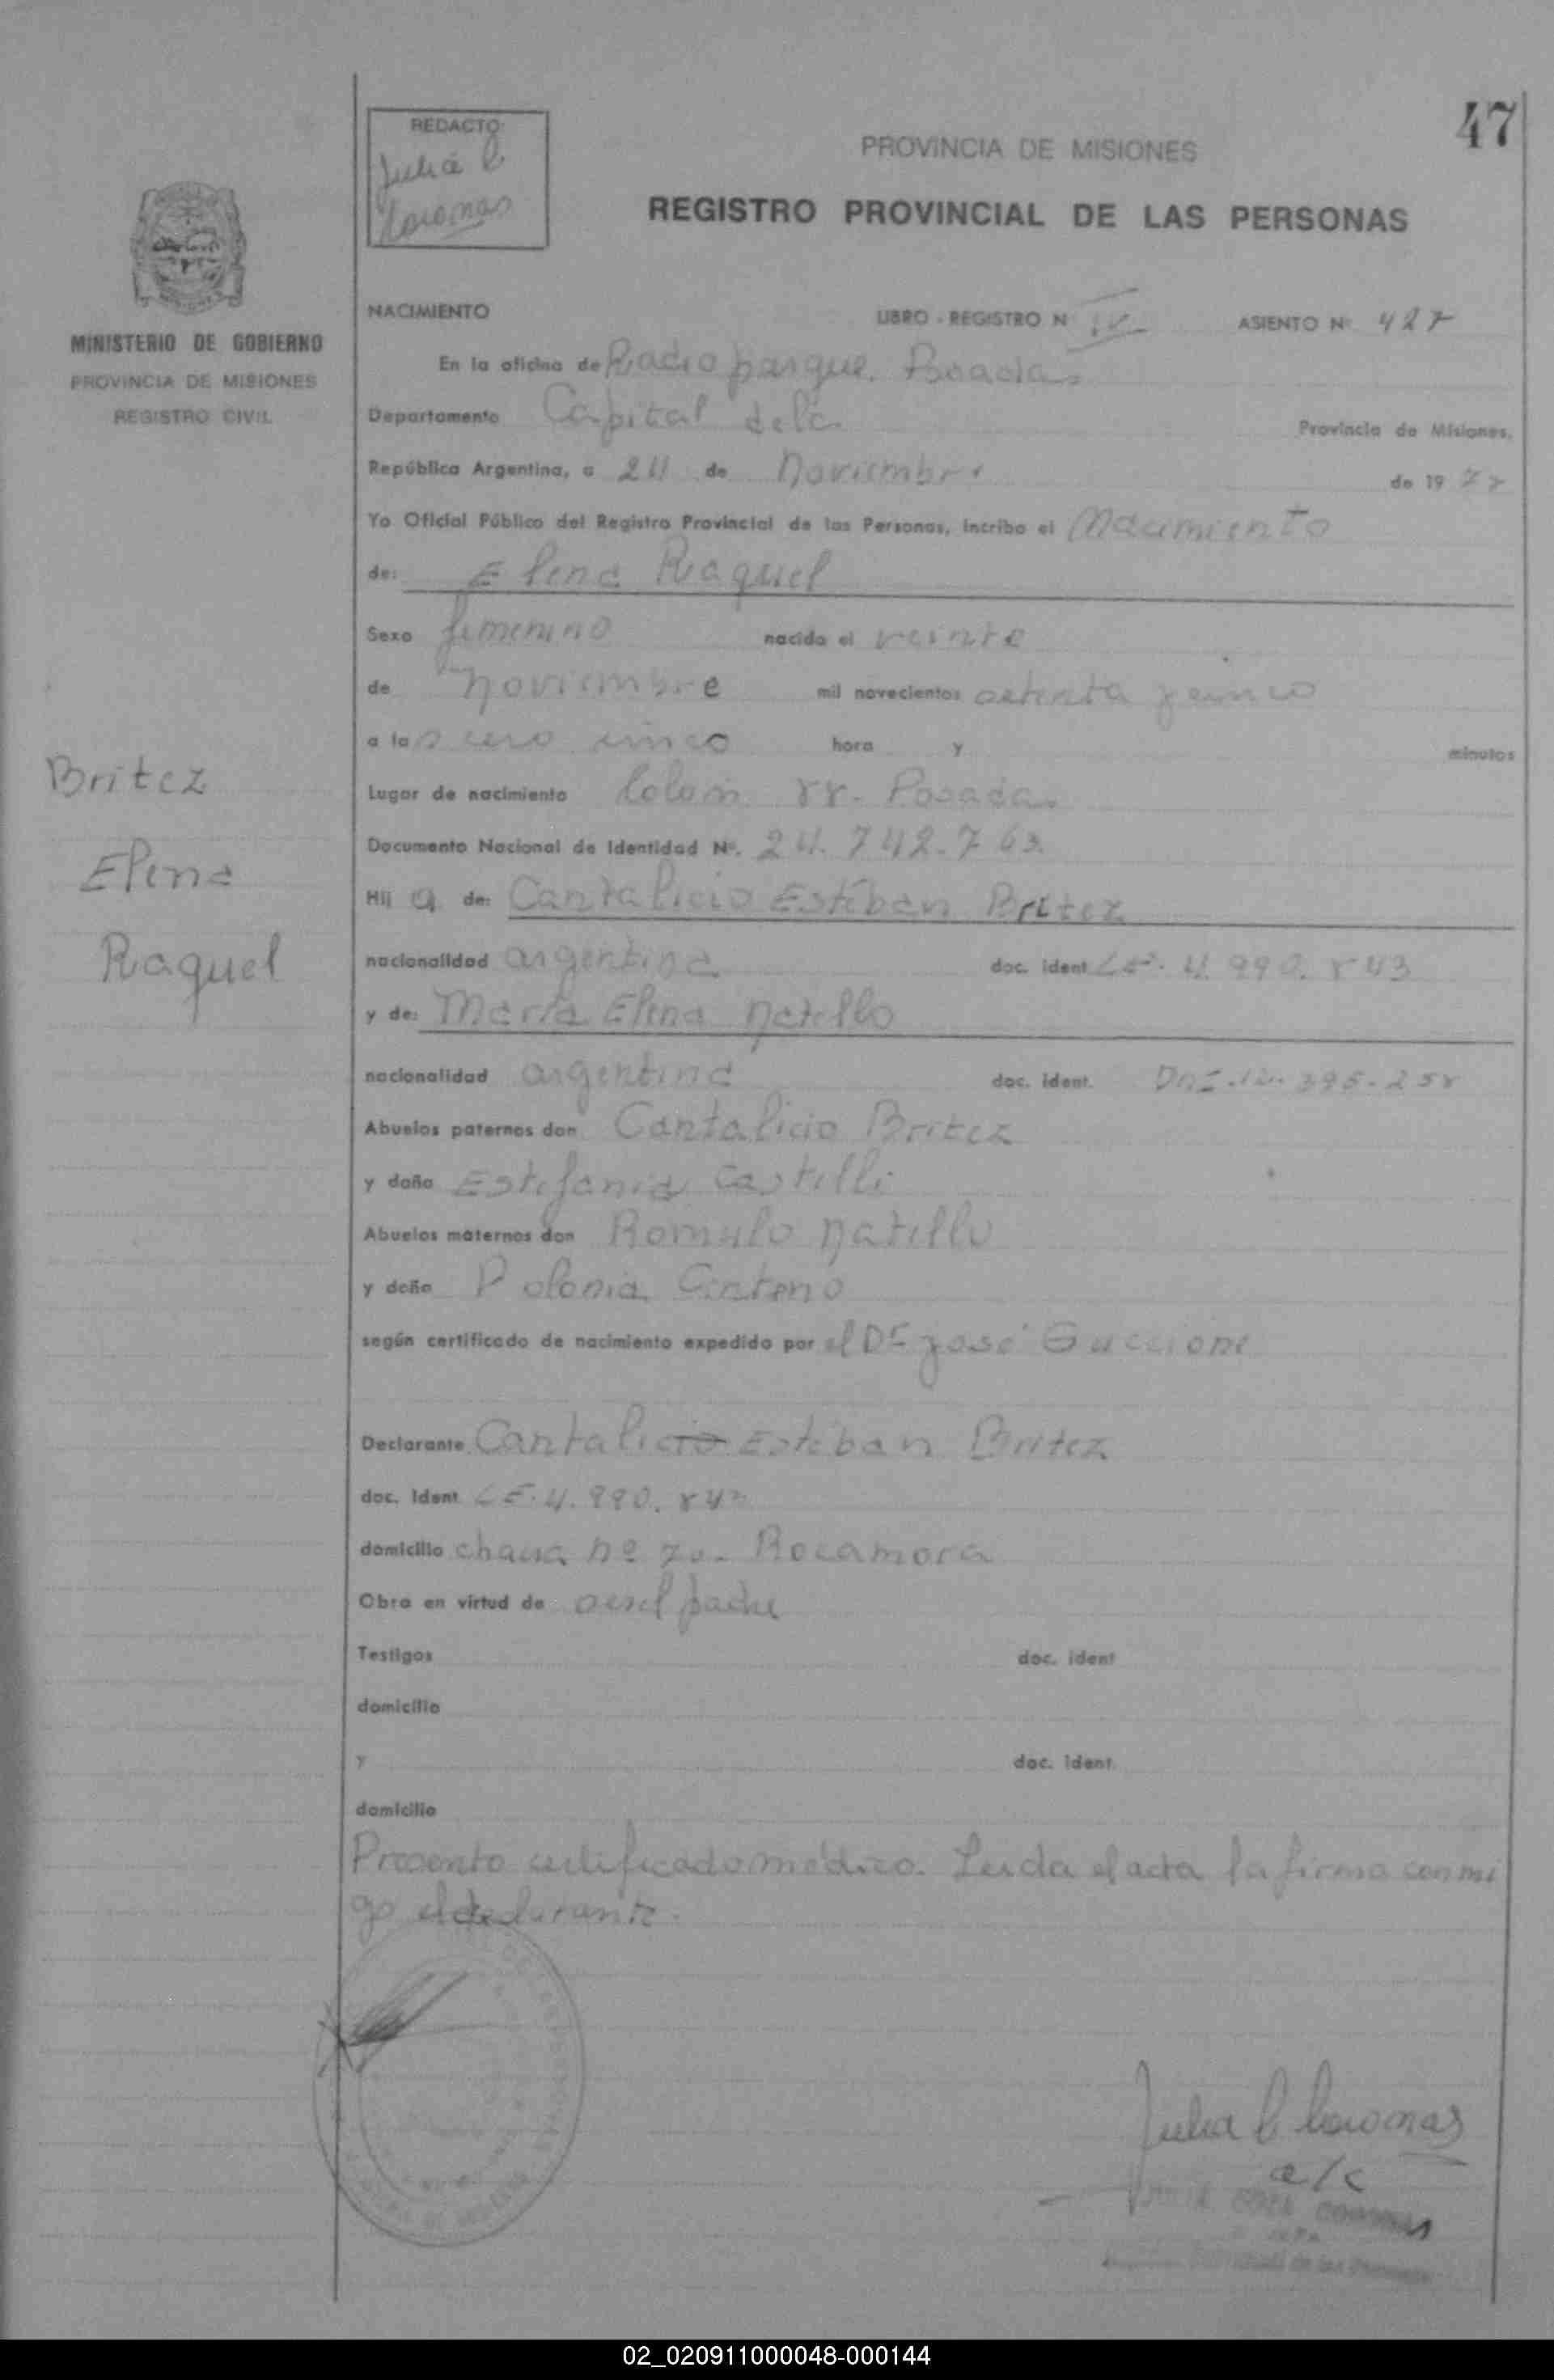 47
REDACTO:
Julia C
Coromas
PROVINCIA DE MISIONES
REGISTRO PROVINCIAL DE LAS PERSONAS
MINISTERIO DE GOBIERNO
PROVINCIA DE MISIONES
REGISTRO CIVIL
NACIMIENTO LIBRO - REGISTRO N IV ASIENTO Nº 427
En la oficina de Radio parque. Posadas
Departamento Capital dela Provincia de Misiones.
República Argentina, a 24 de noviembre de 19
Yo Oficial Público del Registro Provincial de las Personas, incribo el Nacimiento
de: Elena Raquel
Sexo femenino nacido el veinte
de noviembre mil novecientos setenta y cinco
a las cero cinco hora y minutos
Lugar de nacimiento Colon Posadas
Documento Nacional de Identidad Nº. 24.742.763
Britez
Elena
Raquel
Hij a de: Cantalicio Esteban Britez
nacionalidad argentina doc. ident LE. 4.990.843
y de: María Elena Natello
nacionalidad argentina doc. ident. DNI.12.395.258
Abuelos paternos don Cantalicio Britez
y doña Estefania Castelli
Abuelos maternos don Romulo Natello
y doña Polonia Centeno
según certificado de nacimiento expedido por el Dr José Guccione
Declarante Cantalicio Esteban Britez
doc. Ident LE.4.990.843
domicilio chacra nº 70. Rocamora
Obra en virtud de ser el padre
Testigos doc. ident
domicilio
y doc. ident.
domicilio
Presento certificado médico. Leida el acta la firma conmi
go el declarante.
Julia C Coromas
a/c
02_020911000048-000144